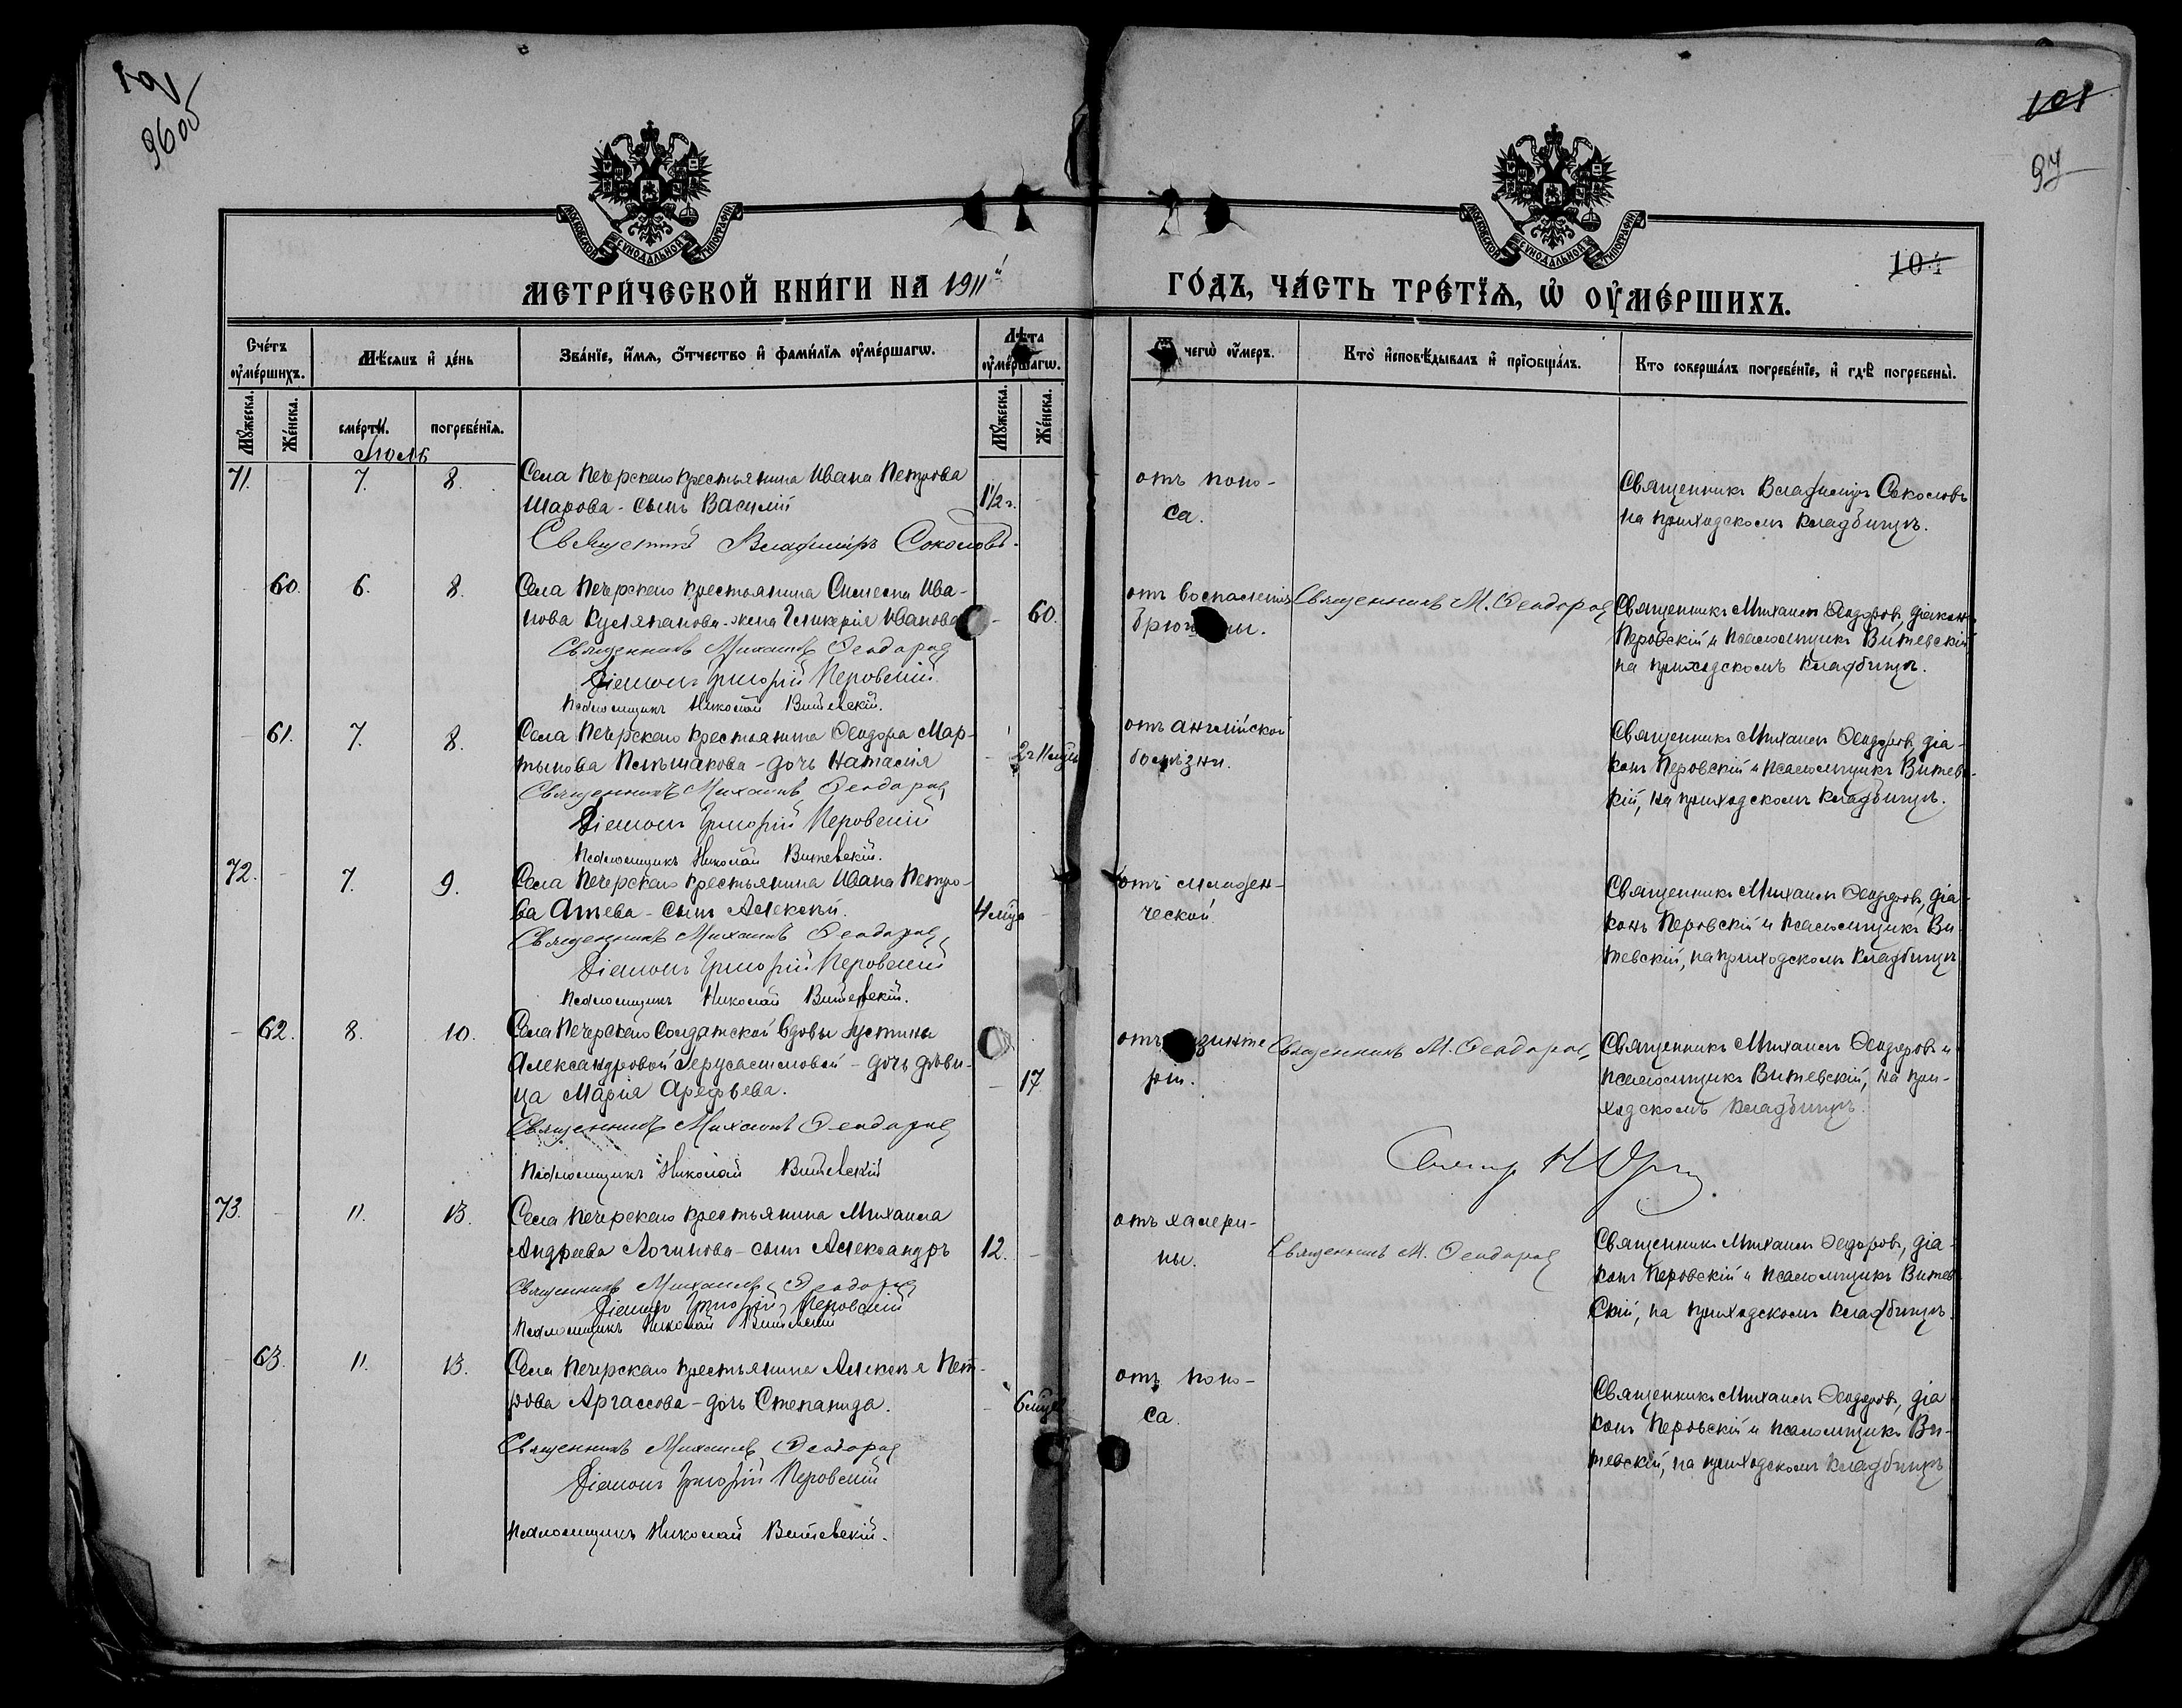 101
96об
101
97
104
МОСКОВСКОЙ СѴНОДАЛЬНОЙ ТИПОГРАФІИ
МОСКОВСКОЙ СѴНОДАЛЬНОЙ ТИПОГРАФІИ
МЕТРИ́ЧЕСКОЙ КНИ́ГИ НА 1911й
ГО́ДЪ, ЧА́СТЬ ТРЕ́ТЇѦ, Ѡ҆ ОУ҆МЕ́РШИХЪ.
Сче́тъ оу҆ме́ршихъ.
Мѣ́сѧцъ и҆ де́нь
Зва́нїе, и҆́мѧ, ѻ҆́тчество и҆ фами́лїѧ оу҆ме́ршагѡ.
Лѣ́та оу҆ме́ршагѡ.
чегѡ̀ оу҆́меръ.
Кто̀ и҆сповѣ́дывалъ и҆ прїѡбща́лъ.
Кто соверша́лъ погребе́нїе, и҆ гдѣ̀ погребены̀.
Мꙋ́жеска.
Же́нска.
сме́рти.
погребе́нїѧ.
Мꙋ́жеска.
Же́нска.
Іюль
71. - 7. 8. Села Печерскаго крестьянина Ивана Петрова
Шарова - сынъ Василій 1½ г. -
Священникъ Владиміръ Соколовъ.
отъ поно-
са.
Священникъ Владиміръ Соколовъ
на приходскомъ кладбищѣ.
- 60. 6. 8. Села Печерскаго крестьянина Симеона Ива-
нова Кусляпанова - жена Гликерія Иванова - 60.
Священникъ Михаилъ Ѳеодоровъ
Діаконъ Григорій Перовскій
Псаломщикъ Николай Витевскій.
отъ воспаленія
брюш ны.
Священникъ М. Ѳеодоровъ
Священникъ Михаилъ Ѳеодоровъ, діаконъ
Перовскій и псаломщикъ Витевскій
на приходскомъ кладбищѣ.
- 61. 7. 8. Села Печерскаго крестьянина Ѳеодора Мар-
тынова - дочь Наталія -
Священникъ Михаилъ Ѳеодоровъ
Діаконъ Григорій Перовскій
Псаломщикъ Николай Витевскій.
отъ англійской
болѣзни.
Священникъ Михаилъ Ѳеодоровъ, діа-
конъ Перовскій и псаломщикъ Витев-
кій, на приходскомъ кладбищѣ.
72. - 7. 9. Села Печерскаго крестьянина Ивана Петро-
ва Атева - сынъ Алексѣй. 4 мѣся -
Священникъ Михаилъ Ѳеодоровъ
Діаконъ Григорій Перовскій
Псаломщикъ Николай Витевскій.
отъ младен-
ческой.
Священникъ Михаилъ Ѳеодоровъ, діа-
конъ Перовскій и псаломщикъ Ви-
тевскій, на приходскомъ кладбищѣ
- 62. 8. 10. Села Печерскаго солдатской вдовы Іустины
Александровой Іерусалимовой - дочь дѣви-
ца Марія Арефьева. - 17.
Священникъ Михаилъ Ѳеодоровъ
Псаломщикъ Николай Витевскій
отъ зинте
ріи.
Священникъ М. Ѳеодоровъ
Священникъ Михаилъ Ѳеодоровъ и
псаломщикъ Витевскій, на при-
ходскомъ кладбищѣ.
73. - 11. 13. Села Печерскаго крестьянина Михаила
Андреева Логинова - сынъ Александръ 12. -
Священникъ Михаилъ Ѳеодоровъ
Діаконъ Григорій Перовскій
Псаломщикъ Николай Витевскій
отъ халери-
ны.
Священникъ М. Ѳеодоровъ
Священникъ Михаилъ Ѳеодоровъ, діа-
конъ Перовскій и псаломщикъ Витев
скій, на приходскомъ кладбищѣ.
- 63. 11. 13. Села Печерскаго крестьянина Алексѣя Пет-
рова Аргассова - дочь Степанида. - 6 мѣся
Священникъ Михаилъ Ѳеодоровъ
Діаконъ Григорій Перовскій
Псаломщикъ Николай Витевскій.
отъ поно-
са.
Священникъ Михаилъ Ѳеодоровъ, діа
конъ Перовскій и псаломщикъ Ви-
тевскій, на приходскомъ кладбищѣ